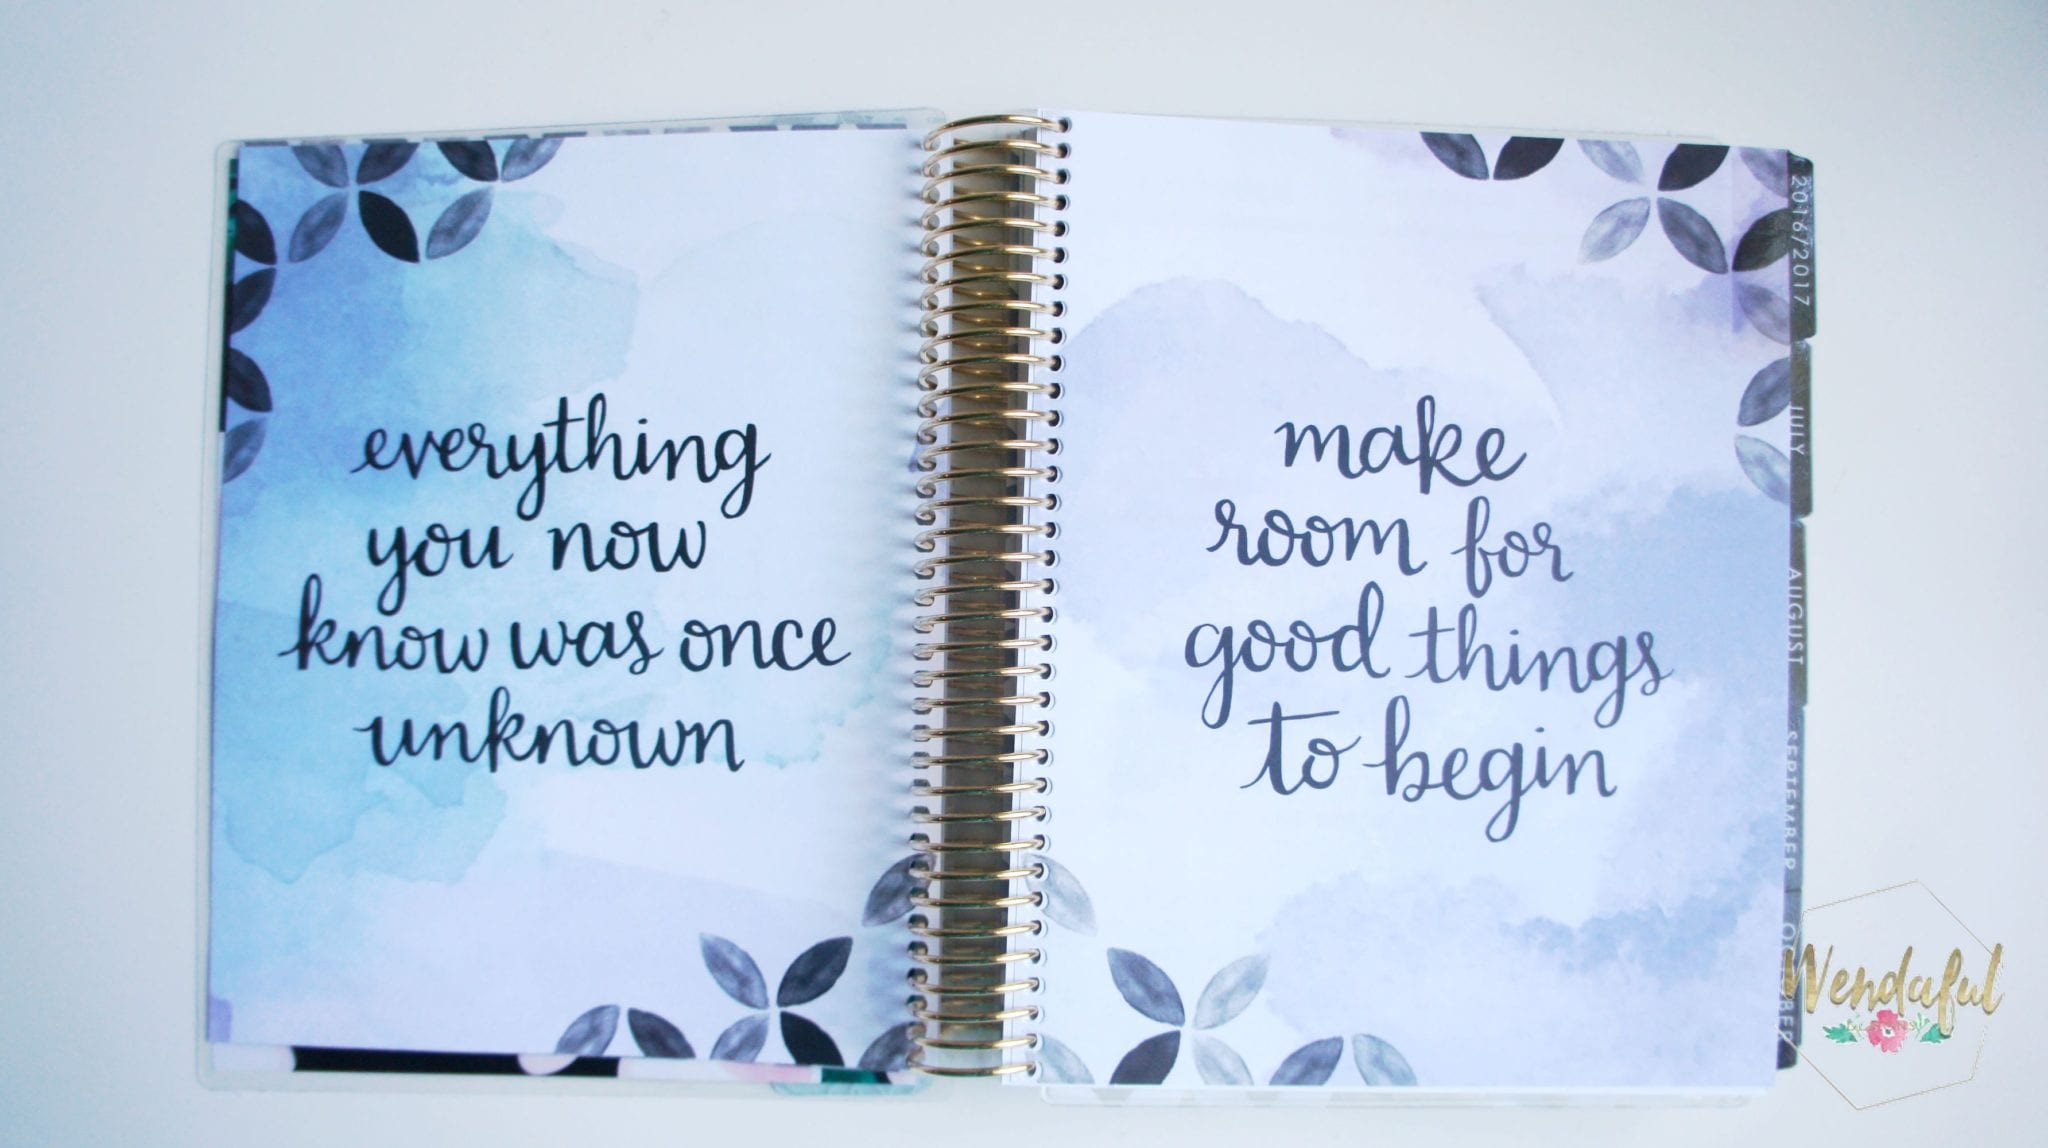 everything
you now
know was once
unknown
make
room for
good things
to begin
2016/2017
JULY
AUGUST
SEPTEMBER
OCTOBER
Wendaful